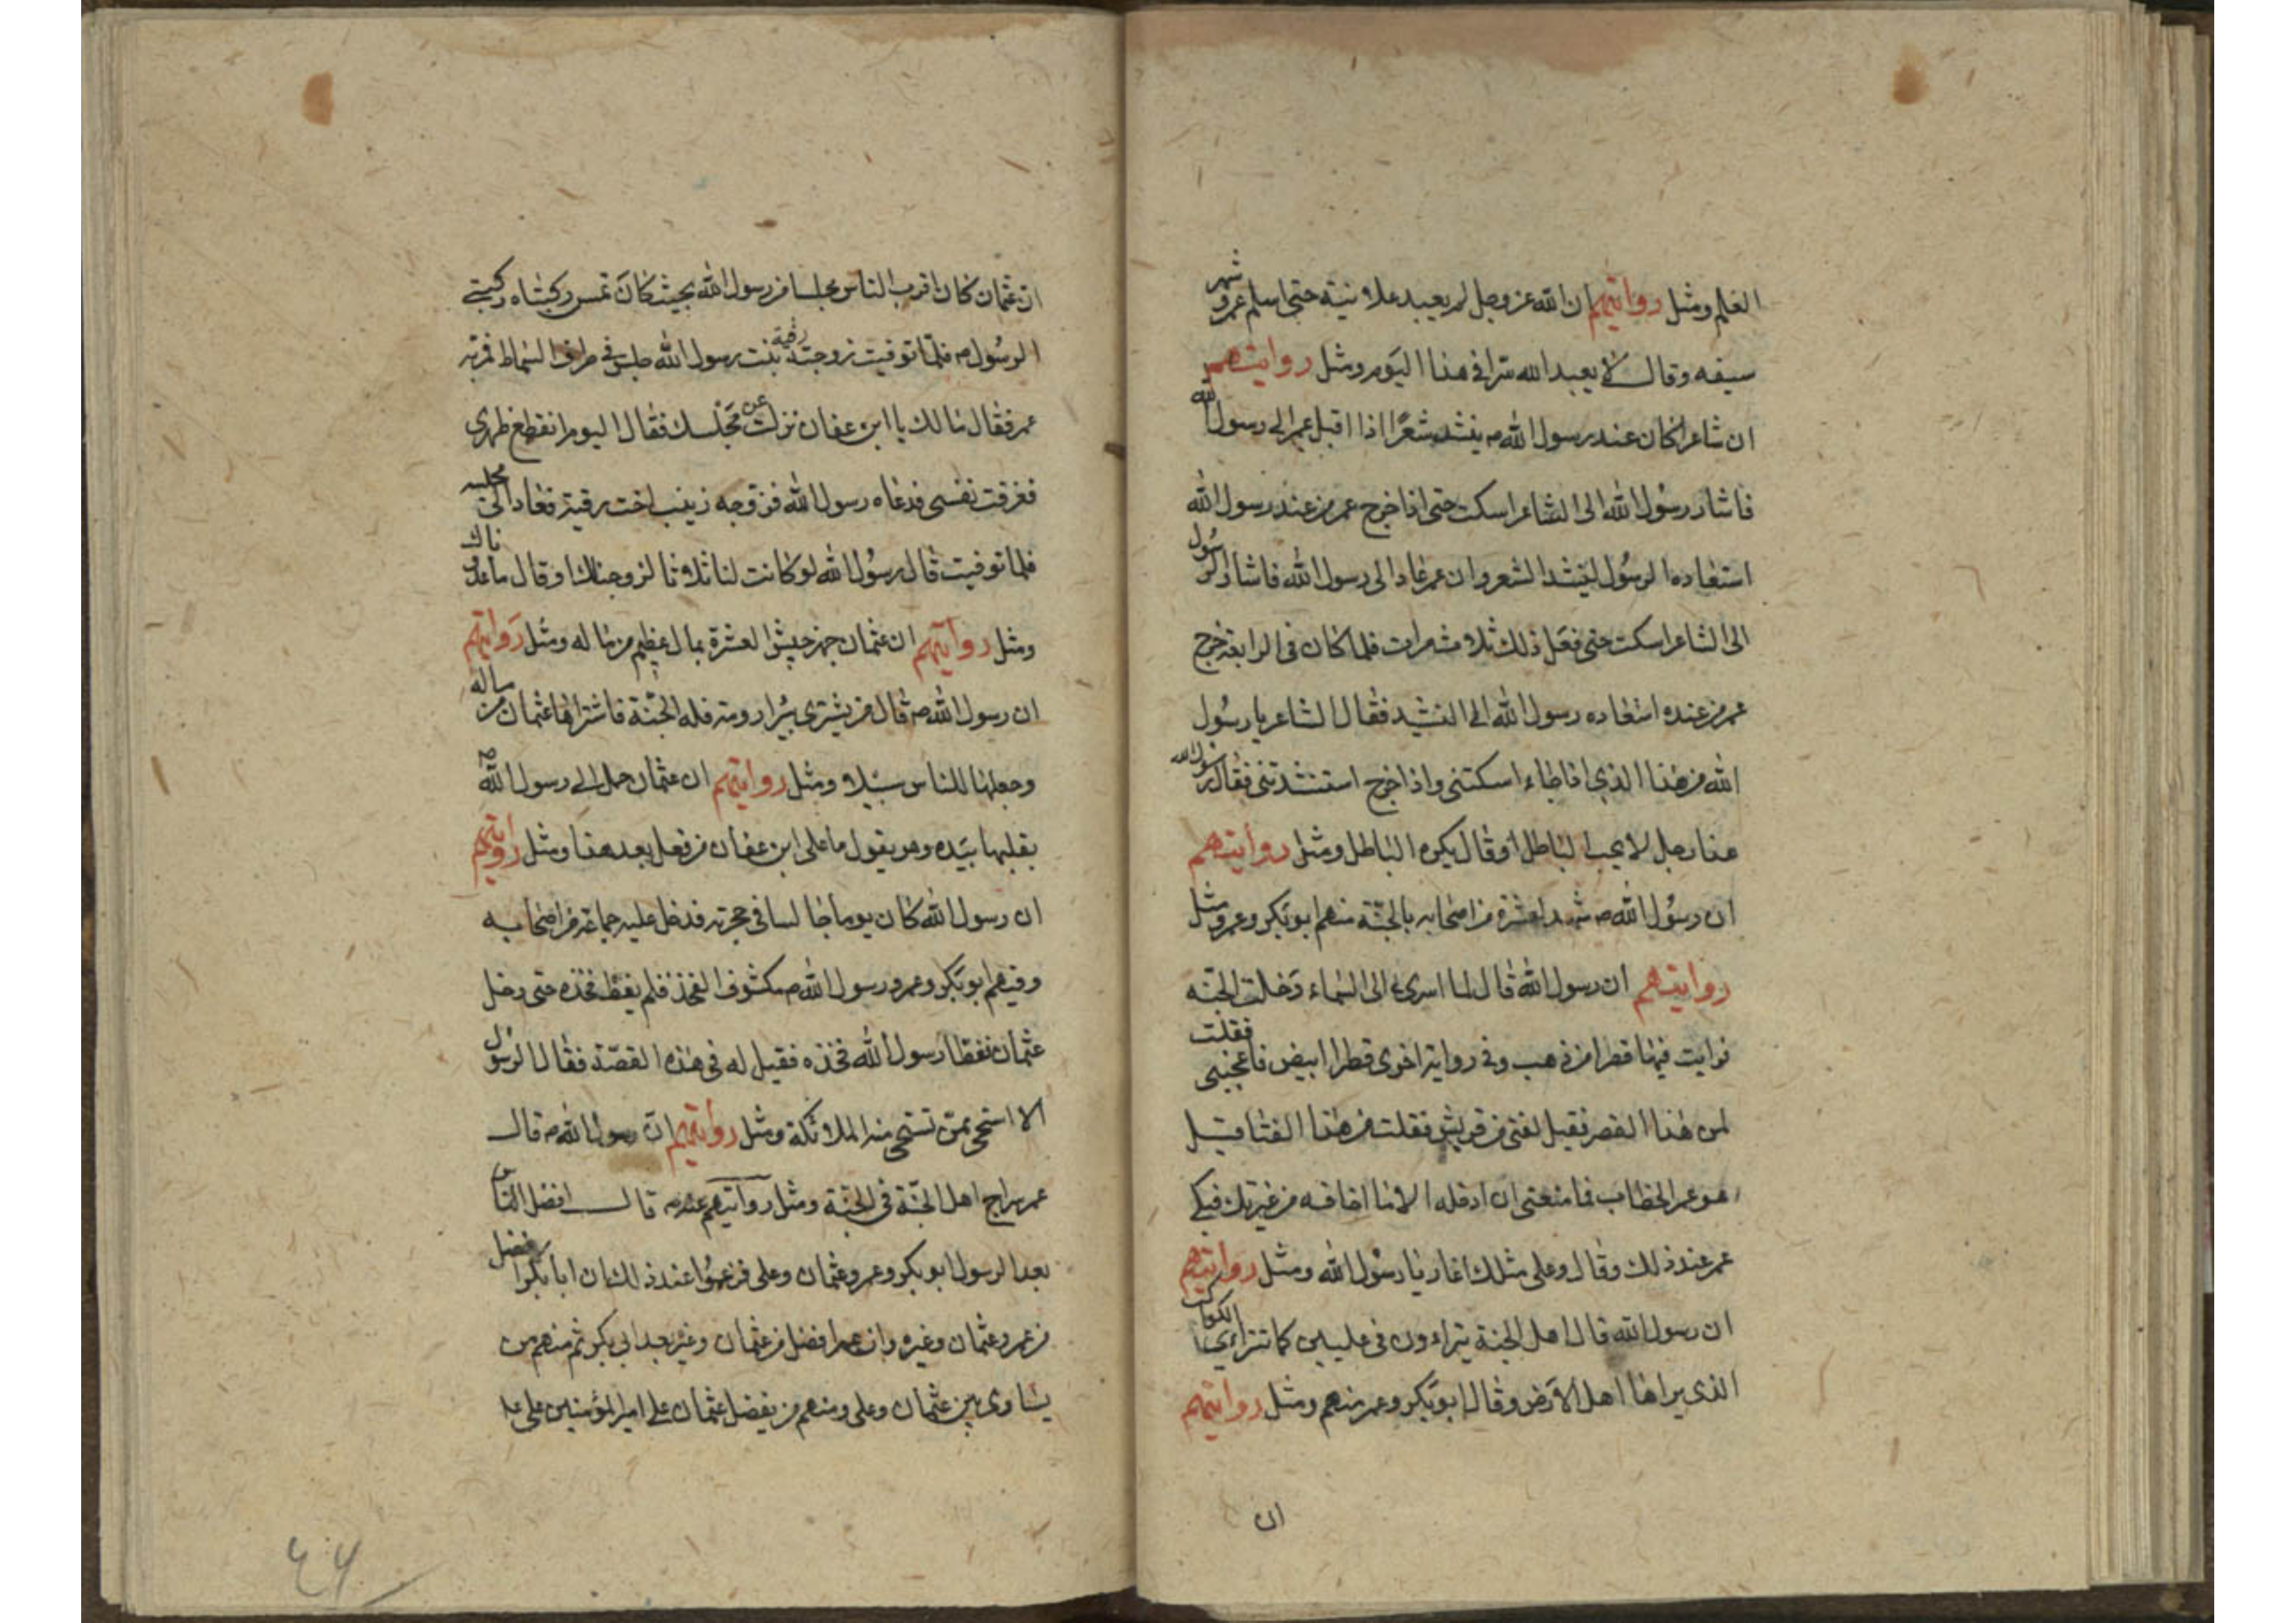 العلم ومثل روايتهم ان الله عز وجل لم يعبد علانية حتى اسلم عمر وشهر
سيفه وقال لا يعبد الله سرا في هذا اليوم ومثل روايتهم
ان شاعرا كان عند رسول الله ص ينشد شعرًا اذا اقبل عمر الى رسول الله
فاشار رسول الله الى الشاعر اسكت حتى اذا خرج عمر من عند رسول الله
استعاده الرسول لينشد الشعر وان عمر عاد الى رسول الله فاشار الرسول
الى الشاعر اسكت حتى فعل ذلك ثلاث مرات فلما كان في الرابعة خرج
عمر من عنده استعاده رسول الله الى النشيد فقال الشاعر يا رسول
الله من هذا الذي اذا جاء اسكتني واذا خرج استنشدتني فقال رسول الله
هذا رجل لا يحب الباطل او قال يكره الباطل ومثل روايتهم
ان رسول الله ص شهد لعشرة من اصحابه بالجنّة منهم ابو بكر وعمر ومثل
روايتهم ان رسول الله قال لما اسري بي الى السماء دخلت الجنّه
فرايت فيها قصرا من ذهب وفي رواية اخرى قصرا ابيض فاعجبني فقلت
لمن هذا القصر فقيل لفتى من قريش فقلت من هذا الفتا قيل
هو عمر الخطاب فما منعني ان ادخله الا ما اخافه من غيرتك فبكى
عمر عند ذلك وقال وعلى مثلك اغار يا رسول الله ومثل روايتهم
ان رسول الله قال اهل الجنة يتراءون في عليين كما تتراءى الكواكب
الذي يراها اهل الارض وقال ابو بكر وعمر منهم ومثل روايتهم
ان
ان عثمان كان اقرب الناس مجلسا من رسول الله بحيث كان تمس ركبتاه ركبتي
الرسول ص فلما توفيت زوجته رقية بنت رسول الله جلس في طرف السماط فمر به
عمر فقال مالك يا ابن عفان نزلت عن مجلسك فقال اليوم انقطع ظهري
فغرقت نفسي فدعاه رسول الله فزوجه زينب اخت رقية فعاد الى مجلسه
فلما توفيت قال رسول الله لو كانت لنا ثلاثا لزوجناك او قال ما عدوناك
ومثل روايتهم ان عثمان جهز جيش العشرة بمال عظيم من ماله ومثل روايتهم
ان رسول الله ص قال من يشتري بئرا رومة فله الجنّة فاشتراها عثمان من ماله
وجعلها للناس سبيلا ومثل روايتهم ان عثمان حمل الى رسول الله ص
يقلبها بيده وهو يقول ما على ابن عفان من فعل بعد هذا ومثل روايتهم
ان رسول الله كان يوما جالسا في حجرته فدخل عليه جماعة من اصحابه
وفيهم ابو بكر وعمر ورسول الله ص مكشوف الفخذ فلم يغط فخذه حتى دخل
عثمان فغطا رسول الله فخذه فقيل له في هذه القصّة فقال الرسول
الا استحي ممن تستحي منه الملائكة ومثل روايتهم ان رسول الله ص قال
عمر سراج اهل الجنّة في الجنّة ومثل روايتهم عنه ص قال افضل الناس
بعد الرسول ابو بكر وعمر وعثمان وعلي فزعموا عند ذلك ان ابا بكر افضل
من عمر وعثمان وغيره وان عمر افضل من عثمان وغيره بعد ابي بكر ثم منهم من
يساوي بين عثمان وعلي ومنهم من يفضل عثمان على امير المؤمنين علي